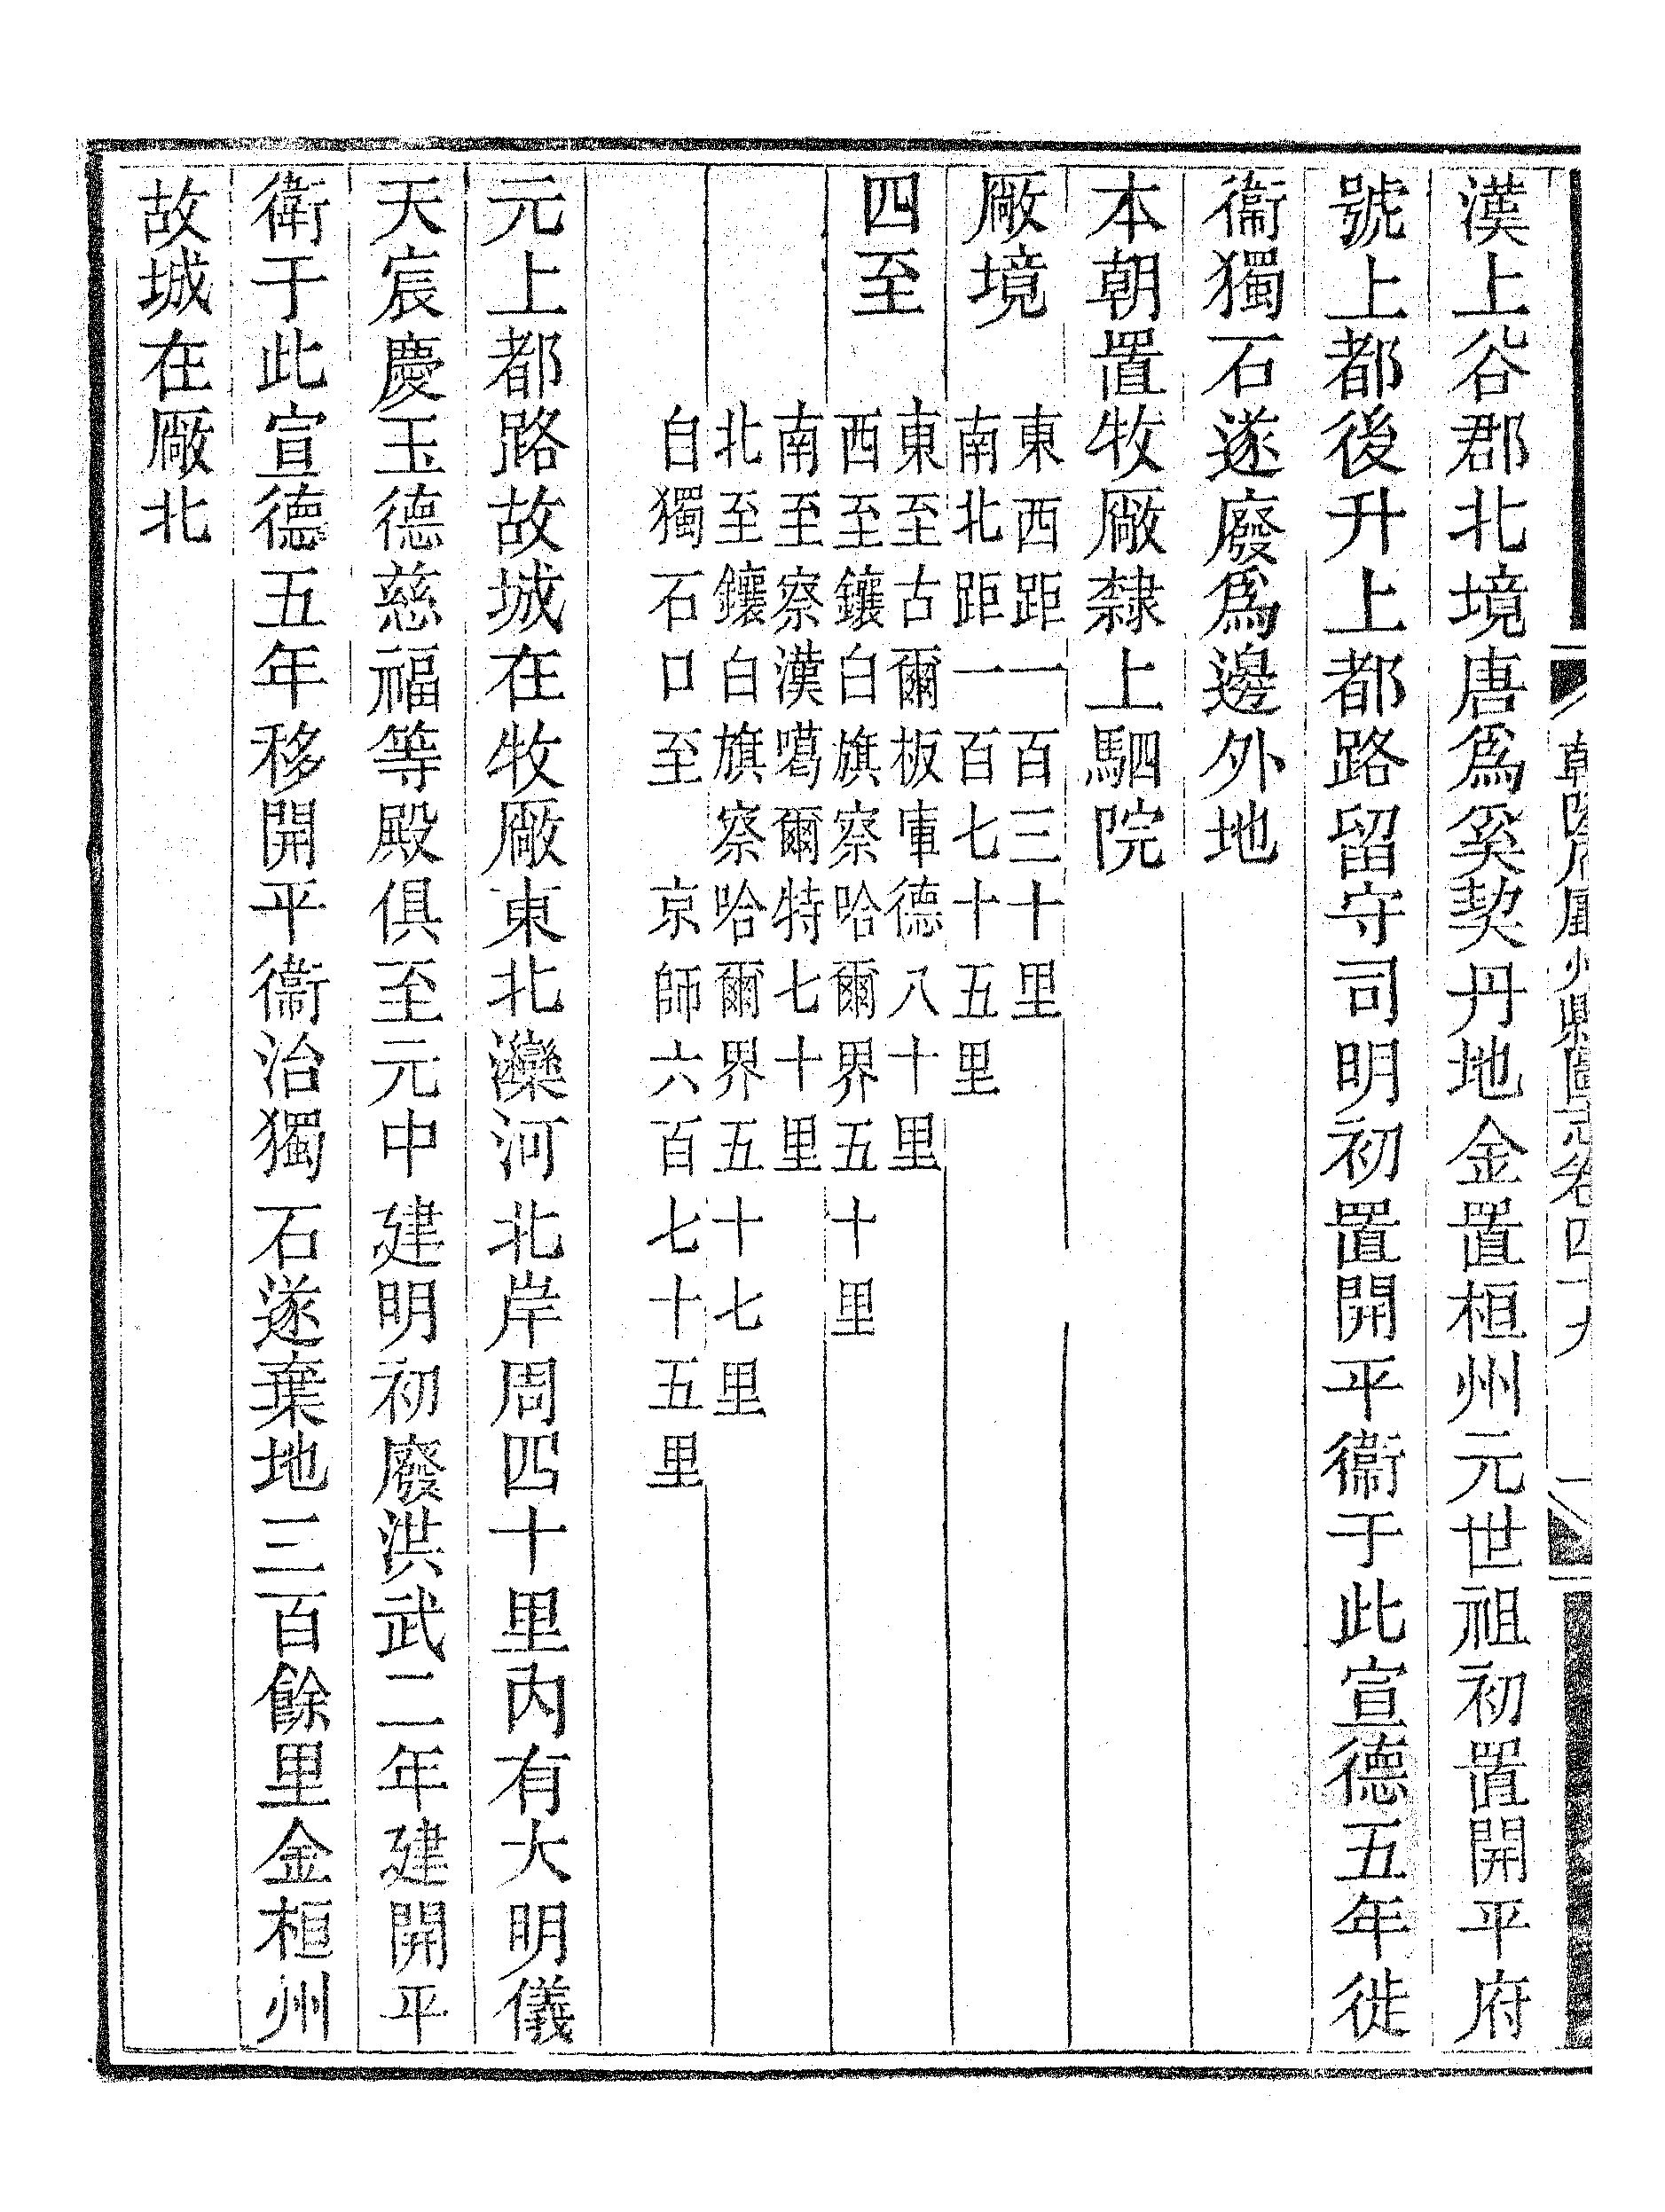 漢上谷郡北境唐爲奚契丹地金置桓州元世祖初置開平府
號上都後升上都路留守司明初置開平衞于此宣德五年徙
衞獨石遂廢爲邊外地
本朝置牧厰隸上駟院
厰境
東西距一百三十里
南北距一百七十五里
四至
東至古爾板庫德八十里
西至鑲白旗察哈爾界五十里
南至察漢噶爾特七十里
北至鑲白旗察哈爾界五十七里
自獨石口至京師六百七十五里
元上都路故城在牧厰東北灤河北岸周四十里內有大明儀
天宸慶玉德慈福等殿俱至元中建明初廢洪武二年建開平
衛于此宣德五年移開平衞治獨石遂棄地三百餘里金桓州
故城在厰北